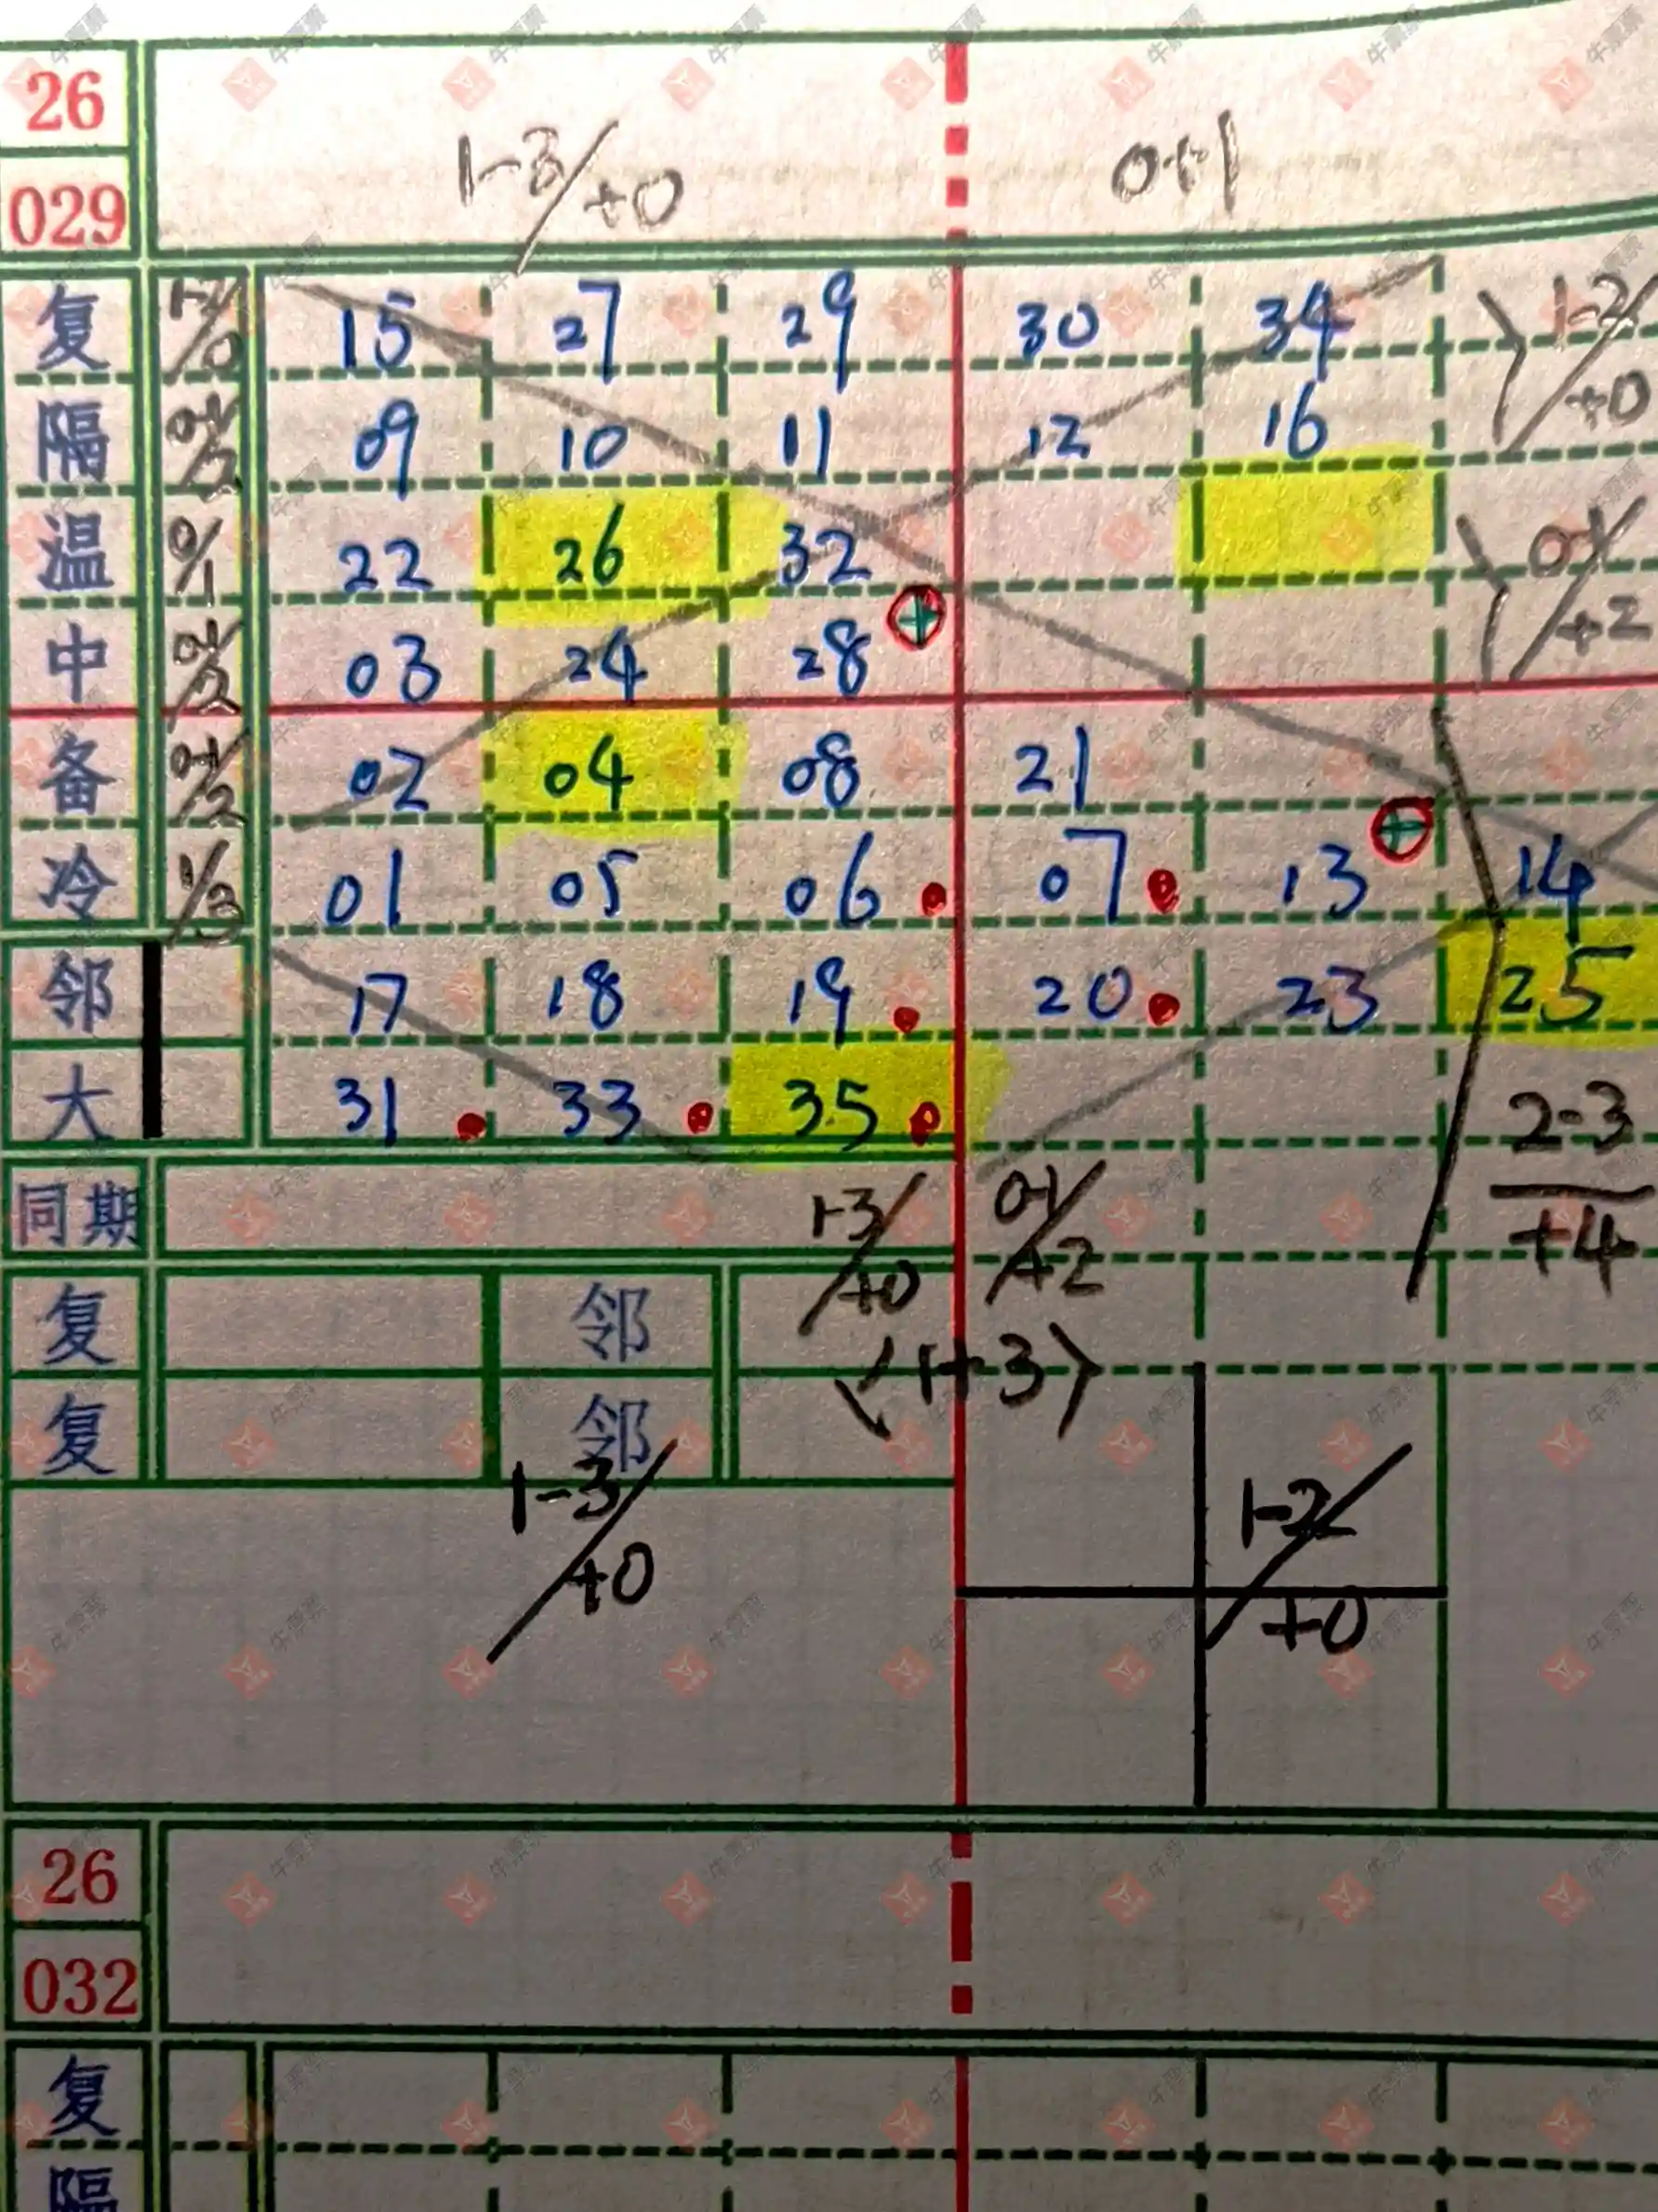 26
029
1-3/+0 0+1
复 1-1/0 15 27 29 30 34 1-2/+0
隔 0-1/2 09 10 11 12 16
温 0/1 22 26 32 0-1/+2
中 0-1/2 03 24 28
备 0-1/2 02 04 08 21
冷 1/3 01 05 06 07 13 14
邻 17 18 19 20 23 25
大 31 33 35 2-3/+4
同期 1-3/+0 0-1/+2
复 邻
<1+3>
复 邻
1-3/+0 1-2/+0
26
032
复
隔